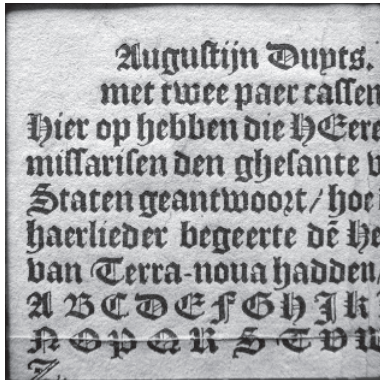 Augustijn Duyts.
met twee paer cassen
Hier op hebben die HEere
missarisen den ghesante
Staten geantwoort/ hoe
haerlieder begeerte dē He
van Terra-noua hadden,
A B C D E F G H J K
N O P Q R S T V W